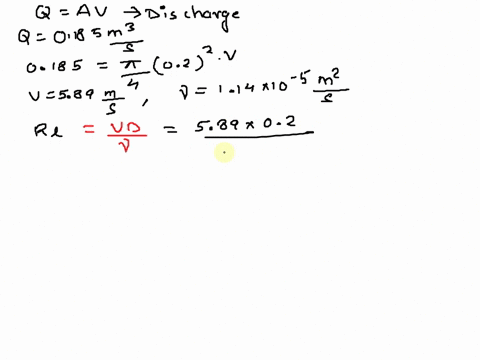 Q = AV → Discharge
Q = 0.185 m³/s
0.185 = π/4 (0.2)² · V
V = 5.89 m/s , ν = 1.14 × 10⁻⁵ m²/s
Re = VD/ν = 5.89 × 0.2